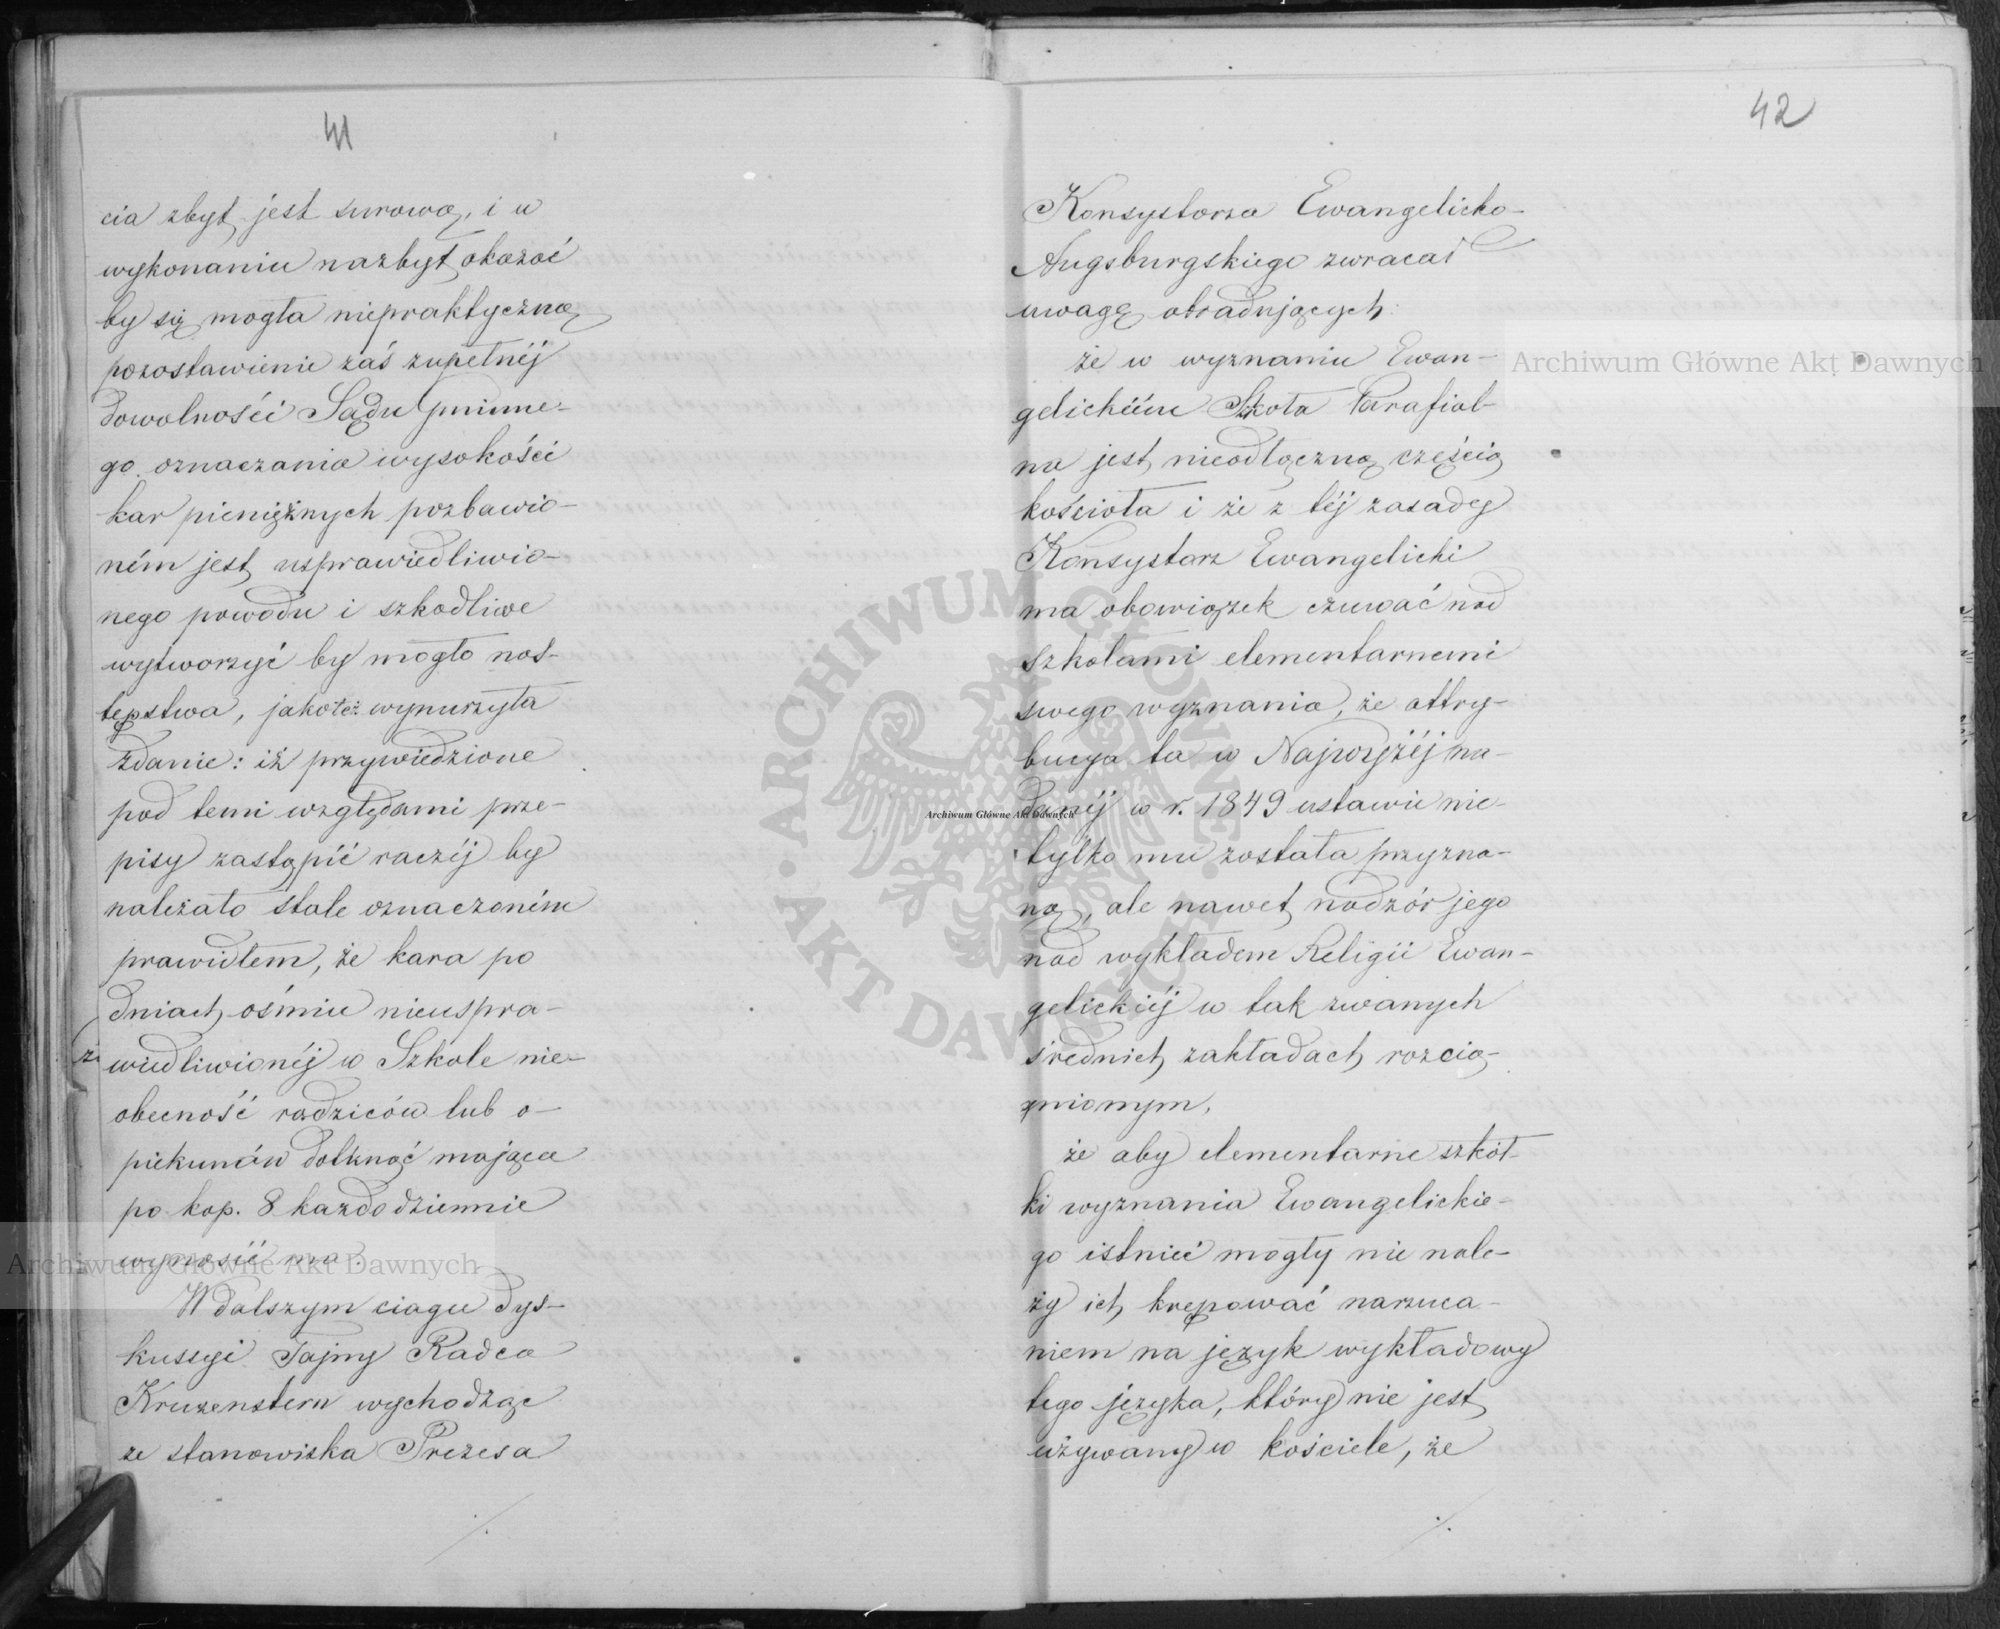 41
cia zbyt jest surową, i w
wykonaniu nazbyt okazać
by się mogła niepraktyczną,
pozostawienie zaś zupełnéj
dowolności Sądu gminne-
go oznaczania wysokości
kar pieniężnych pozbawio-
ném jest usprawiedliwio-
nego powodu i szkodliwe
wytworzyć by mogło nas-
tępstwa, jakoteż wynurzyła
zdanie: iż przywiedzione
pod temi względami prze-
pisy zastąpić raczéj by
należało stale oznaczoném
prawidłem, że kara po
dniach ośmiu nieuspra-
wiedliwionéj w Szkole nie-
obecność rodziców lub o-
piekunów dotknąć mająca
po kop. 8 każdodziennie
wynosić ma.
W dalszym ciągu dys-
kussyi Tajny Radca
Kruzenstern wychodząc
ze stanowiska Prezesa
42
Konsystorza Ewangelicko-
Augsburgskiego zwracał
uwagę obradujących:
że w wyznaniu Ewan-
gelickiém Szkoła Parafial-
na jest nieodłączną częścią
kościoła i że z téj zasady
Konsystorz Ewangelicki
ma obowiązek czuwać nad
szkołami elementarnemi
swego wyznania, że attry-
bucya ta w Najwyżéj na-
danéj w r. 1849 ustawie nie-
tylko mu została przyzna-
ną, ale nawet nadzór jego
nad wykładem Religii Ewan-
gelickiéj w tak zwanych
średnich zakładach rozcią-
gnionym,
że aby elementarne szkół-
ki wyznania Ewangelickie-
go istnieć mogły nie nale-
ży ich krępować narzuca-
niem na język wykładowy
tego języka, który nie jest
używany w kościele, że
Archiwum Główne Akt Dawnych
Archiwum Główne Akt Dawnych
Archiwum Główne Akt Dawnych
ARCHIWUM GŁÓWNE AKT DAWNYCH